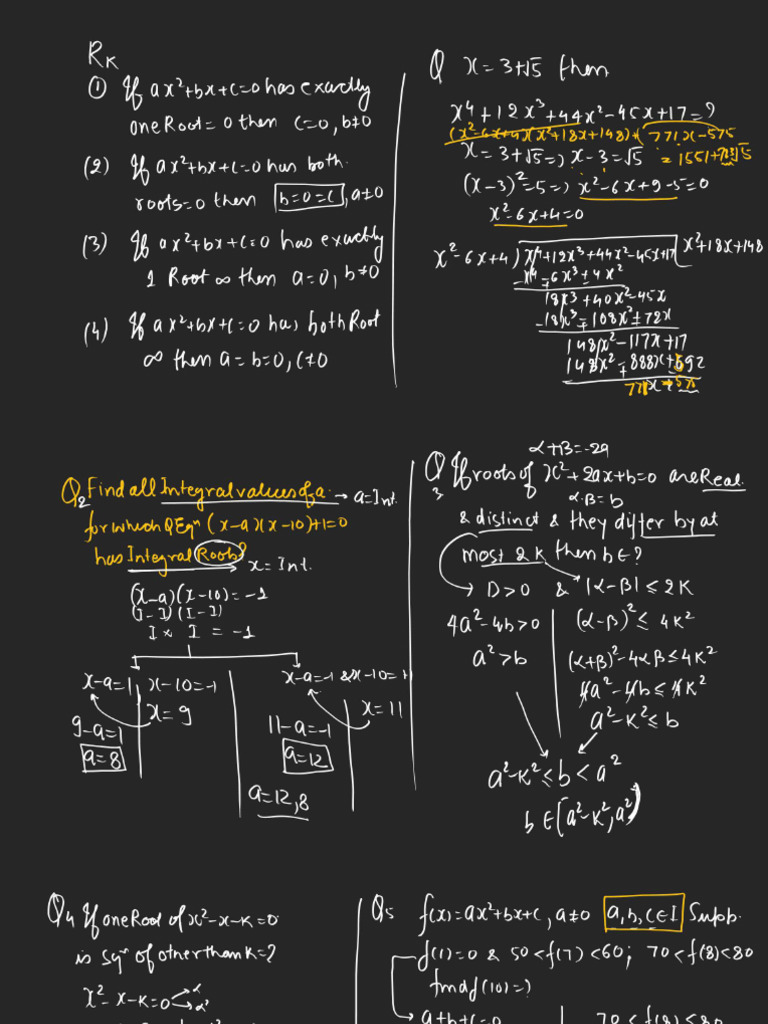 Rk
① If ax²+bx+c=0 has exactly
one Root=0 then c=0, b≠0
(2) If ax²+bx+c=0 has both
roots=0 then b=0=c, a≠0
(3) If ax²+bx+c=0 has exactly
1 Root ∞ then a=0, b≠0
(4) If ax²+bx+c=0 has both Root
∞ then a=b=0, c≠0
Q x=3+√5 then
x⁴+12x³+44x²-45x+17=?
(x²-6x+4)(x²+18x+148)+ 771x-575
x=3+√5 => x-3=√5
(x-3)²=5 => x²-6x+9-5=0
x²-6x+4=0
x²-6x+4) x⁴+12x³+44x²-45x+17 x²+18x+148
x⁴-6x³+4x²
18x³+40x²-45x
148x²-117x+17
148x²-888x+592
Q2 Find all Integral values of a → a=Int.
for which QEqⁿ (x-a)(x-10)+1=0
has Integral Roots?
x=Int.
(x-a)(x-10)=-1
(I-I)(I-I)
I × I = -1
x-a=1 x-10=-1
x=9
9-a=1
a=8
x-a=-1 & x-10=+1
x=11
11-a=-1
a=12
a=12,8
α+β=-2a
Q3 If roots of x²+2ax+b=0 are Real
α.β=b
& distinct & they differ by at
most 2K then b∈?
D>0 & |α-β|≤2K
4a²-4b>0 (α-β)²≤4K²
a²>b (α+β)²-4αβ≤4K²
4a²-4b≤4K²
a²-K²≤b
a²-K²≤b<a²
b∈[a²-K²,a²)
Q4 If one Root of x²-x-K=0
is sqʳ of other than K=?
x²-x-K=0 α α²
Q5 f(x)=ax²+bx+c, a≠0 a,b,c∈I Supp.
f(1)=0 & 50<f(7)<60; 70<f(8)<80
find f(10)=?
a+b+c=0
70<f(8)<80